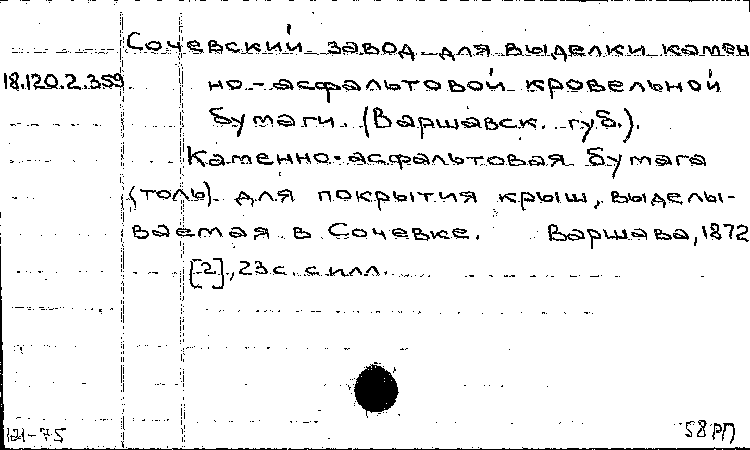 Сочевский завод для выделки камен
18.120.2.359 но-асфальтовой кровельной
бумаги. (Варшавск. губ.).
Каменно-асфальтовая бумага
(толь) для покрытия крыш, выделы-
ваемая в Сочевке. Варшава, 1872
[2], 23 с. с илл.
121-75 58 РП